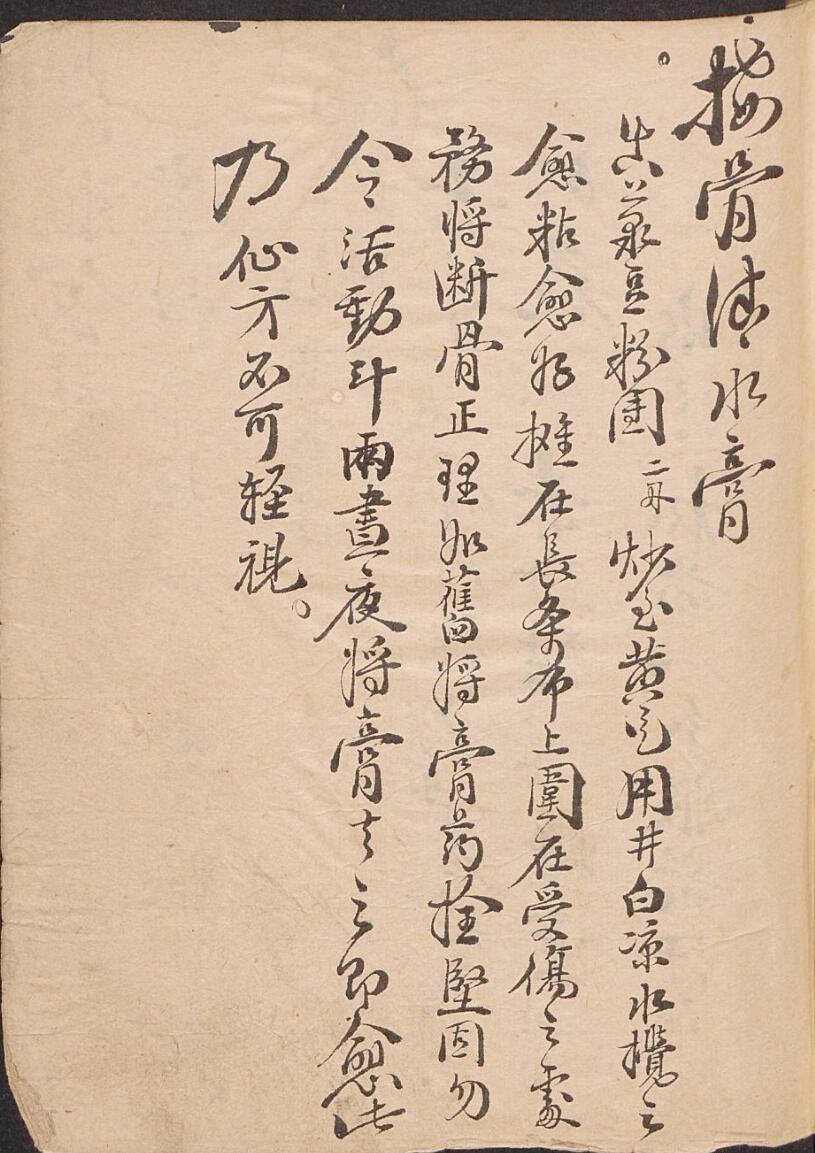 接骨清水膏
真菉豆粉團 二兩 炒至黃色用井白涼水攪之
愈粘愈好攤在長条布上圍在受傷之處
務將断骨正理如舊將膏药拴堅固勿
令活動斗兩晝夜將膏去之即愈此
乃仙方不可輕視。